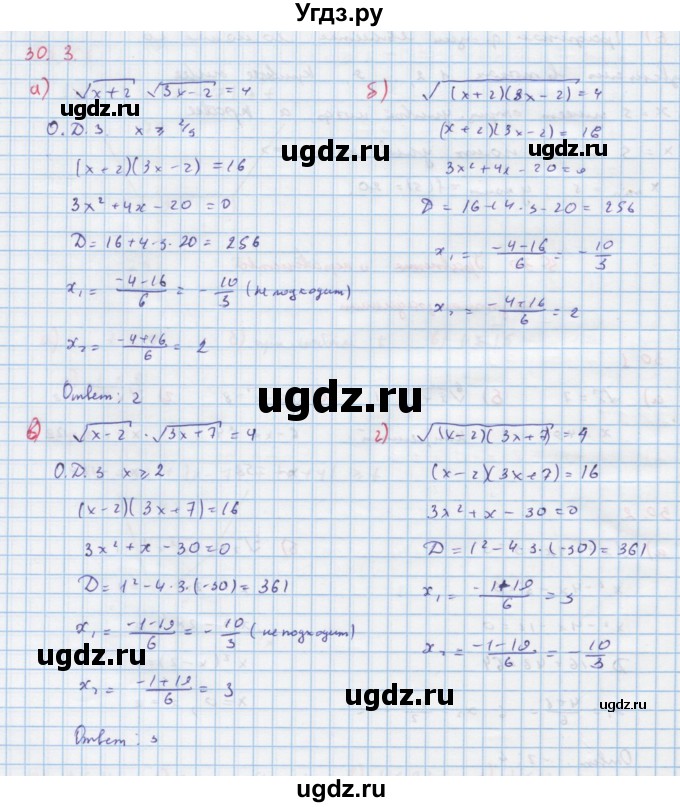 Угдз.ру
30. 3.
а) √(x+2) · √(3x-2) = 4
О.Д.З x ≥ 2/3
(x+2)(3x-2) = 16
3x²+4x-20 = 0
D = 16+4·3·20 = 256
x₁ = (-4-16)/6 = -10/3 (не подходит)
x₂ = (-4+16)/6 = 2
Ответ: 2
б) √((x+2)(3x-2)) = 4
(x+2)(3x-2) = 16
3x²+4x-20=0
D = 16+4·3·20 = 256
x₁ = (-4-16)/6 = -10/3
x₂ = (-4+16)/6 = 2
в) √(x-2) · √(3x+7) = 4
О.Д.З x ≥ 2
(x-2)(3x+7) = 16
3x²+x-30=0
D = 1²-4·3·(-30) = 361
x₁ = (-1-19)/6 = -10/3 (не подходит)
x₂ = (-1+19)/6 = 3
Ответ: 3
г) √((x-2)(3x+7)) = 4
(x-2)(3x+7) = 16
3x²+x-30=0
D = 1²-4·3·(-30) = 361
x₁ = (-1+19)/6 = 3
x₂ = (-1-19)/6 = -10/3
ugdz.ru
ugdz.ru
ugdz.ru
ugdz.ru
ugdz.ru
ugdz.ru
ugdz.ru
ugdz.ru